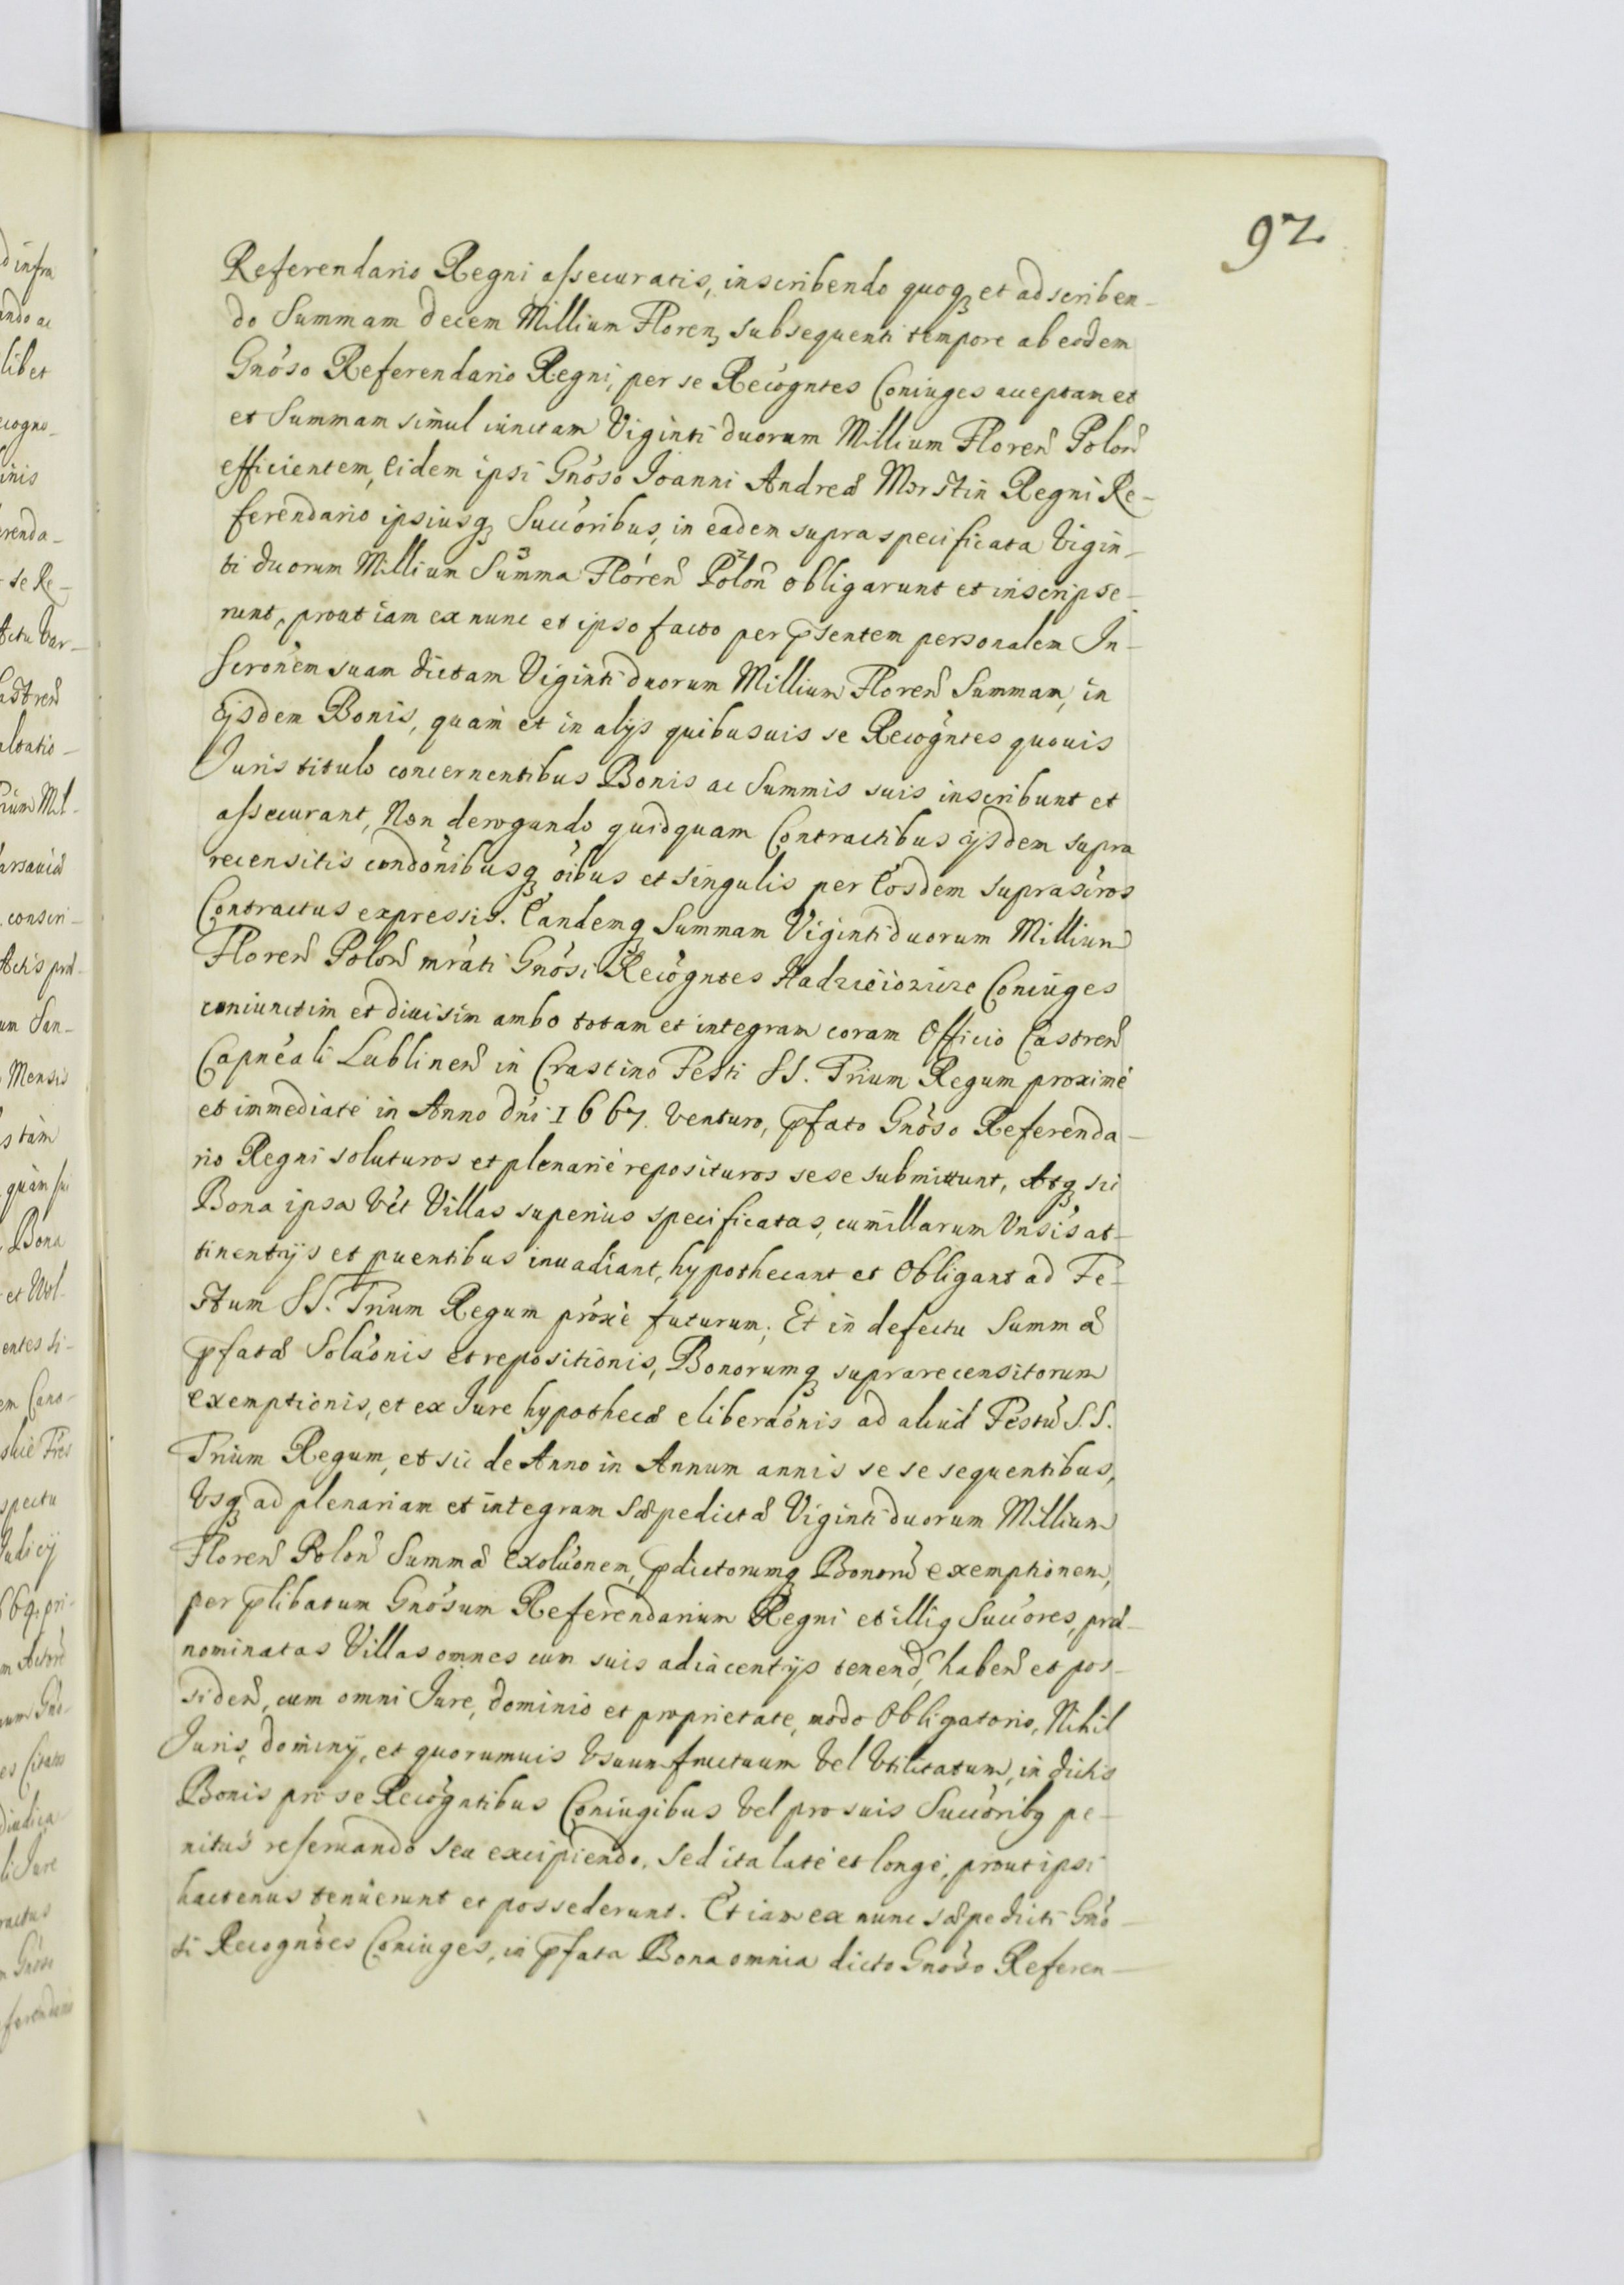 92
Referendario Regni assecuratis, inscribendo quoq, et adscriben-
do Summam decem Millium Floren, subsequenti tempore ab eodem
Gnóso Referendario Regni, per se Recógntes Coniuges acceptam et
et Summam simul iunctam Viginti duorum Millium Floren Polon
efficientem, Eidem ipsi Gnóso Joanni Andreæ Morstin Regni Re-
ferendario ipsiusq Succóribus, in eadem supraspecificata Vigin-
ti duorum Millium Summa Floren Polon obligarunt et inscripse-
runt, prout iam ex nunc et ipso facto per psentem personalem In-
scrónem suam dictam Viginti duorum Millium Floren Summam, in
ijsdem Bonis, quam et in alijs quibusuis se Recógntes quouis
Juris titulo concernentibus Bonis ac Summis suis inscribunt et
assecurant, Non derogando quidquam Contractibus ijsdem supra
recensitis condónibusq óibus et singulis per Eosdem suprascros
Contractus expressis. Eandemq Summam Viginti duorum Millium
Floren Polon mráti Gnósi Recógntes Coniuges
coniunctim et diuisim ambo totam et integram coram Officio Castren
Capneáli Lublinen in Crastino Festi SS. Trium Regum proximé
et immediaté in Anno dni 1667. venturo, pfato Gnóso Referenda-
rio Regni soluturos et plenarié reposituros sese submittunt, Atq sic
Bona ipsa vét Villas superius specificatas, cum illarum Vnsis at-
tinentijs et puentibus inuadiant, hypothecant et Obligant ad Fe-
stum SS. Trium Regum próxé futurum. Et in defectu Summæ
pfatæ Soluónis et repositionis, Bonorumq suprarecensitorum
exemptionis, et ex Jure hypothecæ eliberaónis ad aliud Festu S.S.
Trium Regum, et sic de Anno in Annum annis se se sequentibus,
Vsq ad plenariam et integram Sæpedictæ Viginti duorum Millium
Floren Polon Summæ Exoluónem, pdictorumq Bonoru exemptionem,
per plibatum Gnósum Referendarium Regni et illiq Succóres, præ-
nominatas Villas omnes cum suis adiacentijs tenend, haben et pos-
siden, cum omni Jure, dominio et proprietate, modo Obligatorio, Nihil
Juris, dominij, et quorumuis Vsuumfructuum Vel Vtilitatum, in dictis
Bonis pro se Recógntibus Coniugibus Vel pro suis Succóribq pe-
nitus reseruando seu excipiendo, sed ita laté et longé, prout ipsi
hactenus tenuerunt et possederunt. Et iam ex nunc sæpedicti Gnó-
si Recógntes Coniuges, in pfata Bona omnia dicto Gnóso Referen-